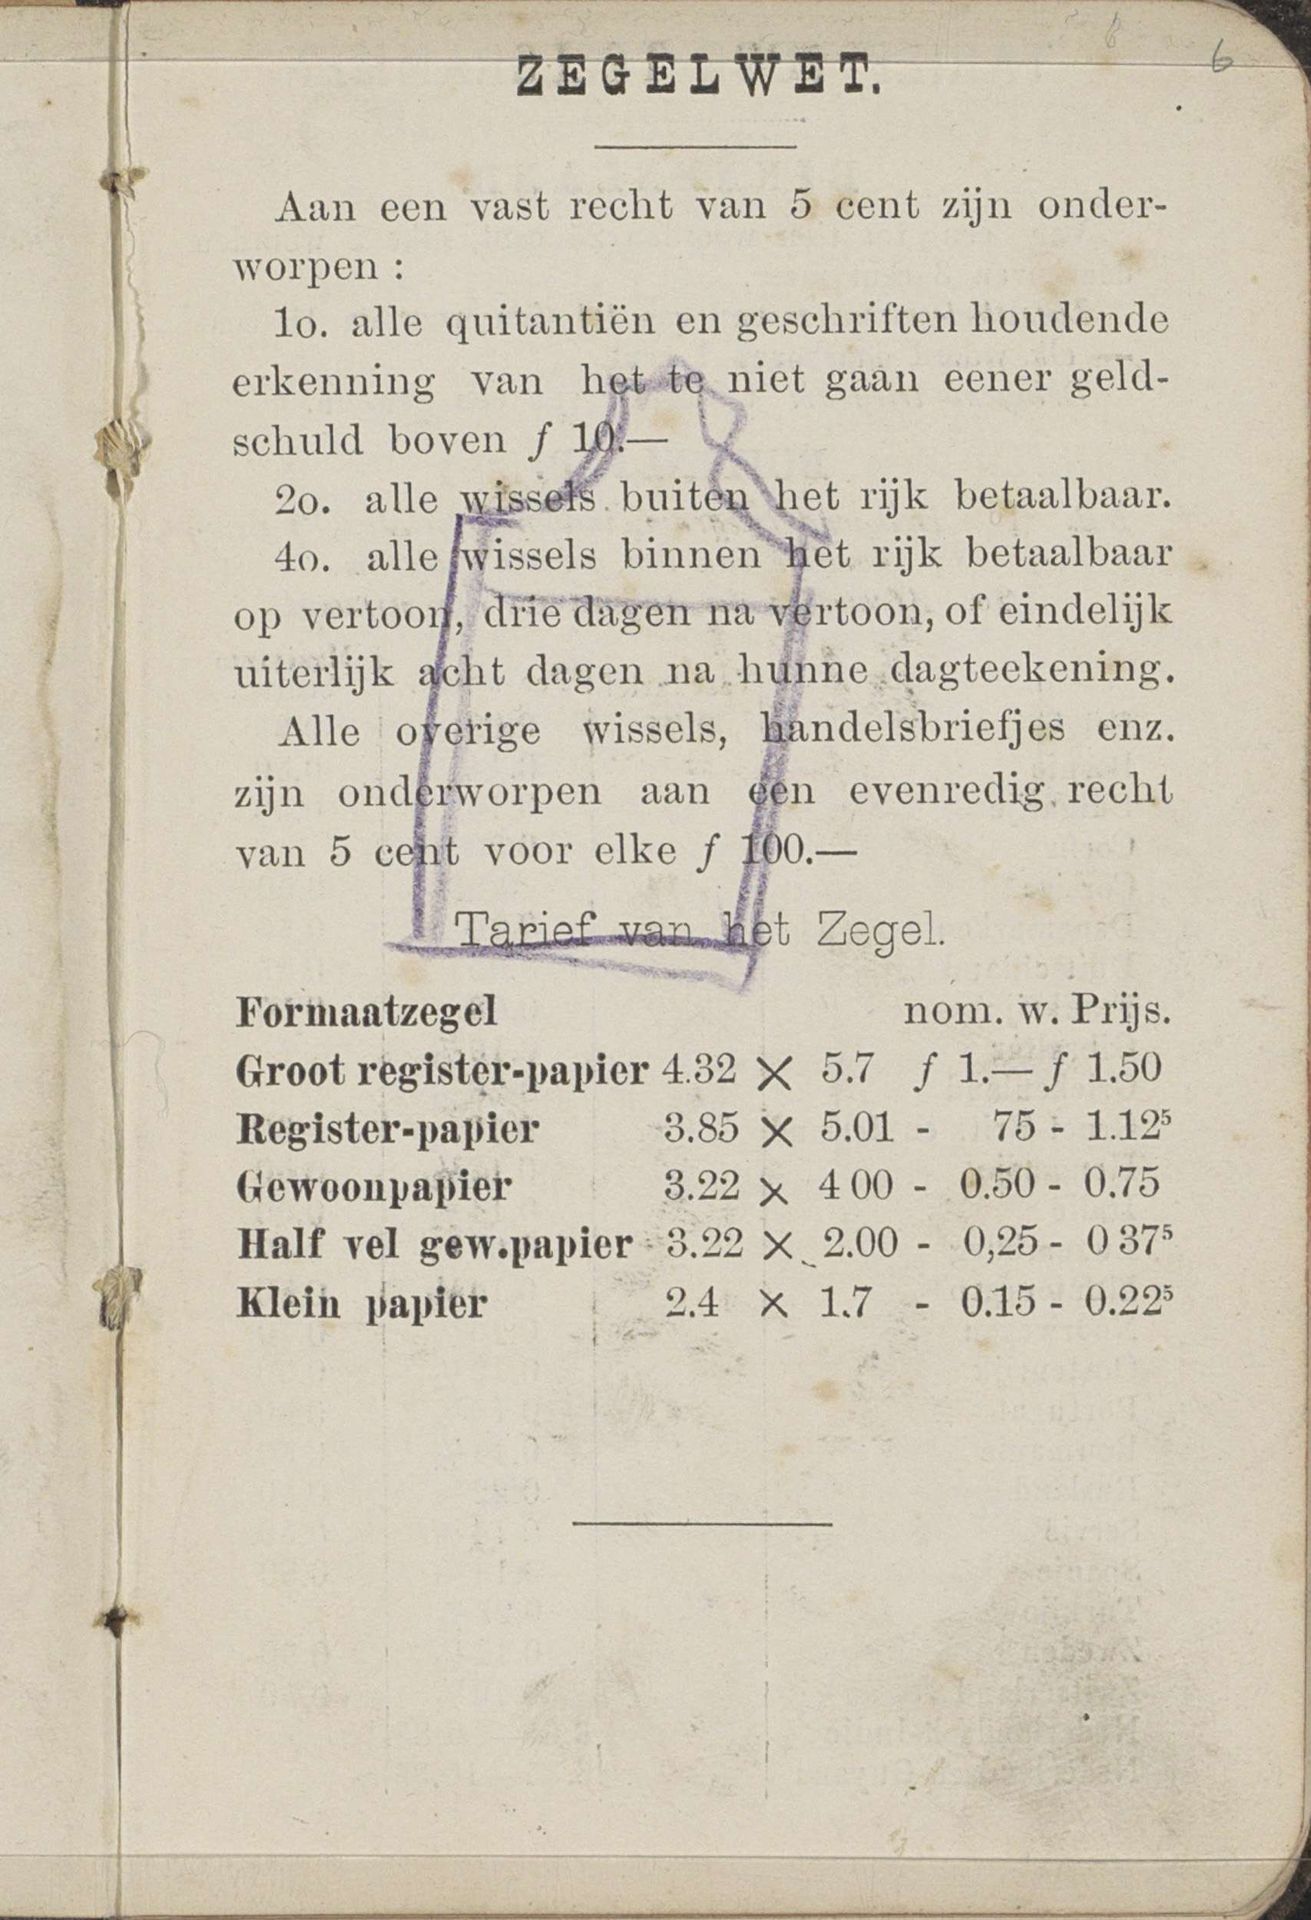 6
ZEGELWET.
Aan een vast recht van 5 cent zijn onder-
worpen :
1o. alle quitantiën en geschriften houdende
erkenning van het te niet gaan eener geld-
schuld boven ƒ 10.—
2o. alle wissels buiten het rijk betaalbaar.
4o. alle wissels binnen het rijk betaalbaar
op vertoon, drie dagen na vertoon, of eindelijk
uiterlijk acht dagen na hunne dagteekening.
Alle overige wissels, handelsbriefjes enz.
zijn onderworpen aan een evenredig recht
van 5 cent voor elke ƒ 100.—
Tarief van het Zegel.
Formaatzegel nom. w. Prijs.
Groot register-papier 4.32 × 5.7 ƒ 1.— ƒ 1.50
Register-papier 3.85 × 5.01 - 75 - 1.12⁵
Gewoonpapier 3.22 × 4 00 - 0.50 - 0.75
Half vel gew.papier 3.22 × 2.00 - 0,25 - 0 37⁵
Klein papier 2.4 × 1.7 - 0.15 - 0.22⁵